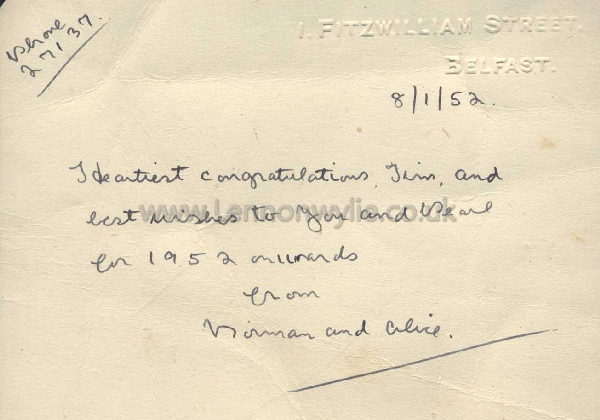 Phone
27137.
1, FITZWILLIAM STREET,
BELFAST.
8/1/52.
Heartiest congratulations, Jim, and
best wishes to you and Pearl
www.Lennonwylie.co.uk
for 1952 onwards
from
Norman and Alice.